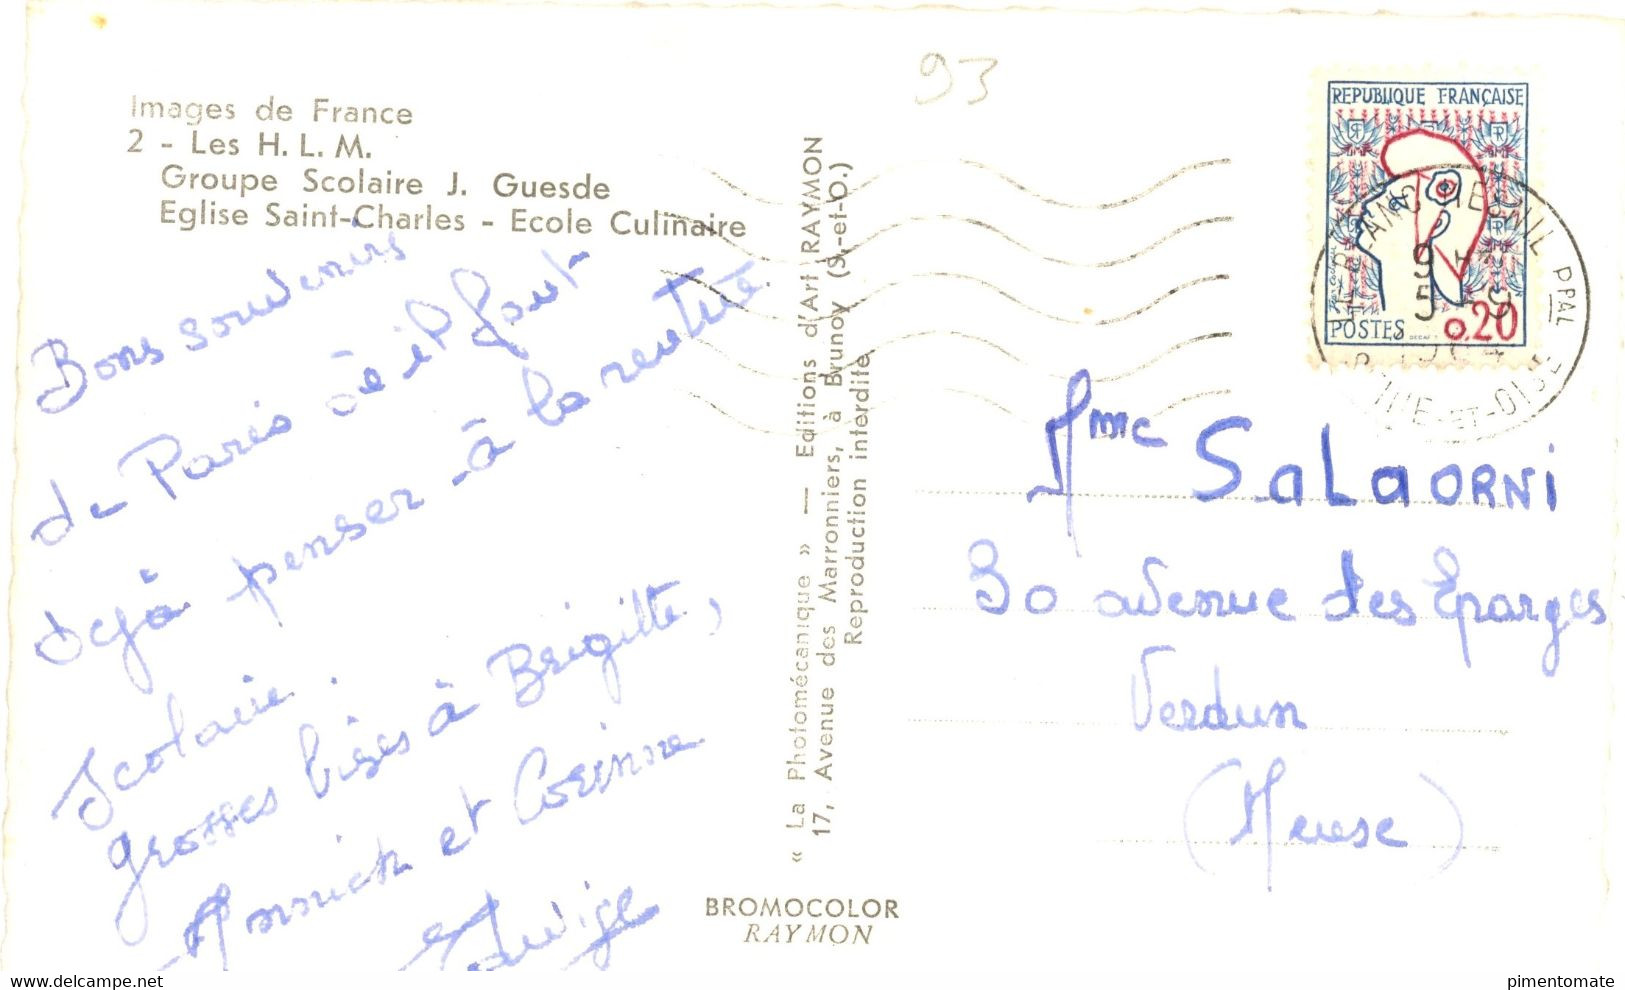 93
Images de France
2 - Les H. L. M.
Groupe Scolaire J. Guesde
Eglise Saint-Charles - Ecole Culinaire
Bons souvenirs
de Paris où il faut
dejà penser à la rentrée
scolaire.
grosses bises à Brigitte,
Annick et Corinne
Edwige
« La Photomécanique » — Editions d'Art RAYMON
17, Avenue des Marronniers, à Brunoy (S.-et-O.)
Reproduction interdite
BROMOCOLOR
RAYMON
REPUBLIQUE FRANÇAISE
POSTES 0.20
LE BLANC MESNIL PPAL
9 H
5 - 9
1964
SEINE-ET-OISE
Mme SALAORNI
30 avenue des Eparges
Verdun
(Meuse)
pimentomate